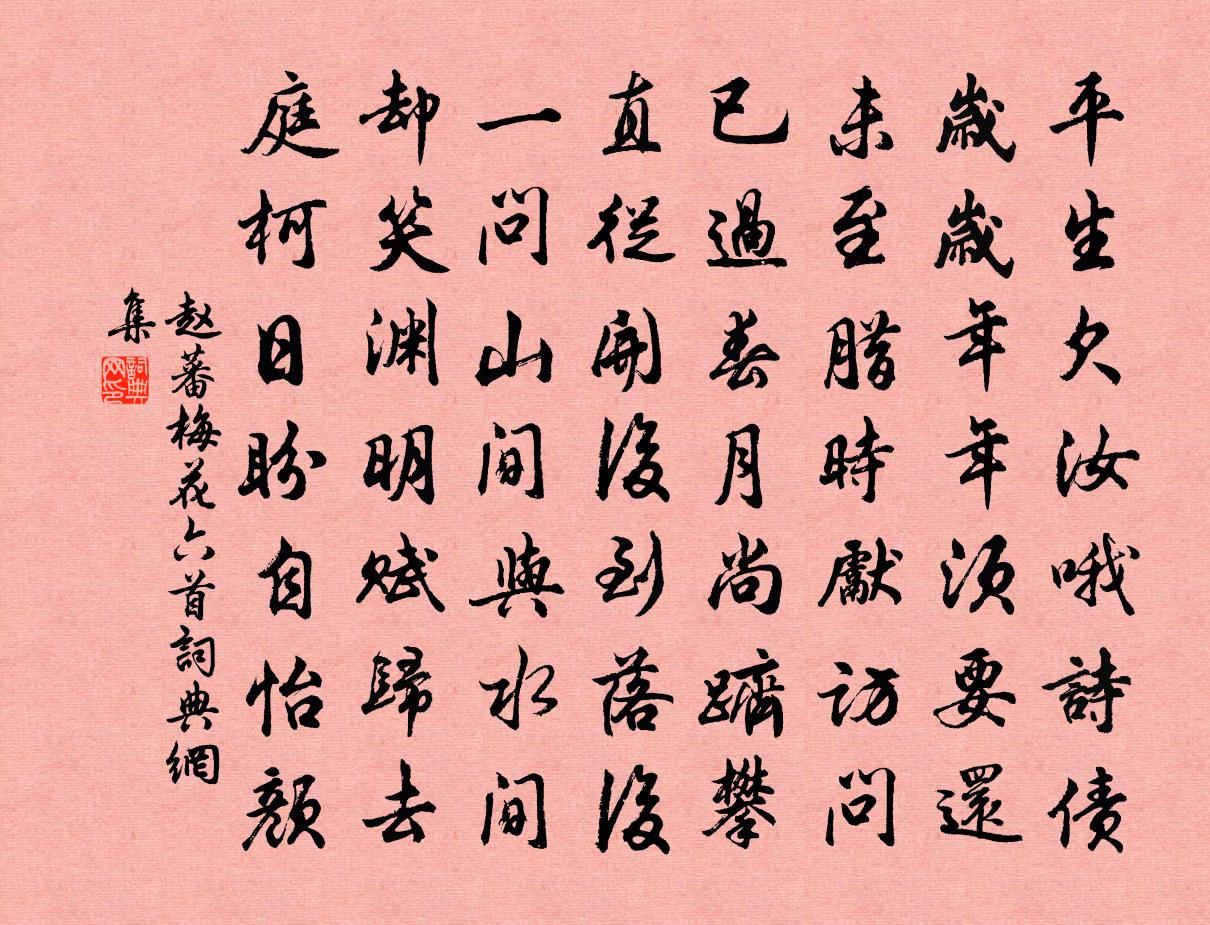 平生欠汝哦詩債
歲歲年年須要還
未至腊時獻访问
已過春月尚躋攀
直從開後到落後
一问山间與水间
却笑渊明赋歸去
庭柯日盼自怡颜
赵蕃梅花六首詞典網
集
詞典
网印